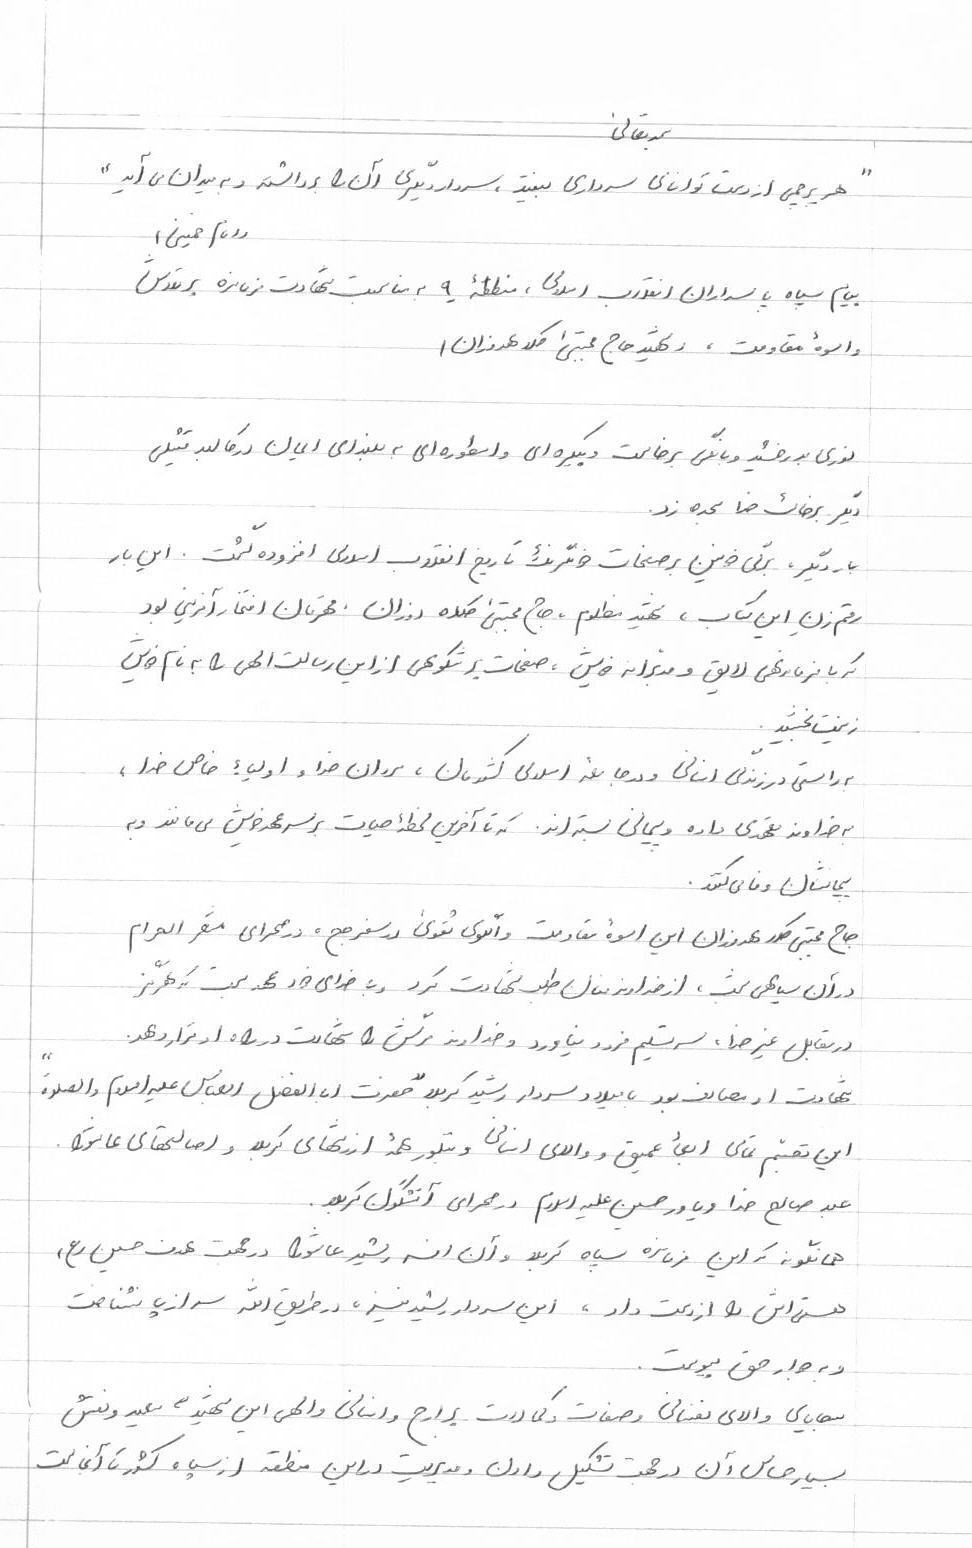 بسمه‌تعالی
"هر پرچمی از دست توانای سرداری بیفتد، سردار دیگری آن را برداشته و به میدان می‌آید"
(امام خمینی)
پیام سپاه پاسداران انقلاب اسلامی، منطقهٔ ۹ به مناسبت شهادت فرمانده پرتلاش
و اسوهٔ مقاومت، (شهید حاج مجتبی کلاهدوزان)
نوری بدرخشید و بانگی برخاست و پیکره‌ای و اسطوره‌ای به بلندای ایمان در کالبد تمثیلی
دیگر بر خاک خدا سجده زد.
بار دیگر، برگی خونین بر صفحات خونرنگ تاریخ انقلاب اسلامی افزوده گشت. این بار
رقم زن این کتاب، شهید مظلوم، حاج مجتبی کلاهدوزان. قهرمان افتخارآفرینی بود
که با فرماندهی لایق و مدبرانه خویش، صفحات پرشکوهی از این رسالت الهی را به نام خویش
زینت بخشید.
براستی در زندگی انسانی و در جامعه اسلامی کشورمان، مردان خدا و اولیاء خاص خدا،
به خداوند تعهدی داده و پیمانی بسته‌اند. که تا آخرین لحظهٔ حیات بر سر عهد خویش می‌مانند و به
پیمانشان وفا می‌کنند.
حاج مجتبی کلاهدوزان این اسوهٔ مقاومت و الگوی تقوی در سفر حج، در صحرای مشعر الحرام
در آن سیاهی شب، از خداوند متعال طلب شهادت کرد و با خدای خود عهد بست که هرگز
در مقابل غیر خدا، سر تسلیم فرود نیاورد و خداوند مرگش را شهادت در راه او قرار دهد.
شهادت او مصادف بود با میلاد سردار رشید کربلا "حضرت اباالفضل العباس علیه السلام والصلوة"
این تجسم تمامی ابعاد عمیق و والای انسانی و تبلور همهٔ ارزشهای کربلا و اصالتهای عاشورا.
عبد صالح خدا و یاور حسین علیه السلام در صحرای آتشگون کربلا.
همانگونه که این فرمانده سپاه کربلا و آن افسر رشید عاشورا در جهت هدف حسین (ع)،
هستی‌اش را از دست داد، این سردار رشید نیز، در طریق الله سر از پا نشناخت
و به جوار حق پیوست.
سجایای والای نفسانی و صفات و کمالات پر ارج و انسانی و الهی این شهید سعید و نقش
بسیار حساس آن در جهت تشکیل دادن و مدیریت در این منطقه از سپاه کشور تا آنجاست